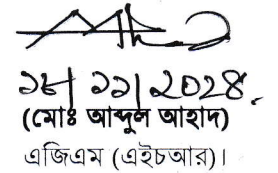 ১৮/ ১১/ ২০২৪.
(মোঃ আব্দুল আহাদ)
এজিএম (এইচআর)।